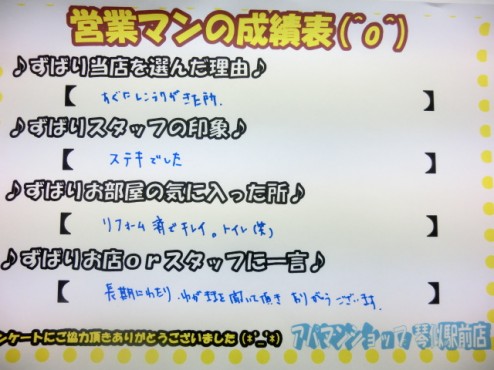 営業マンの成績表(^o^)
♪ずばり当店を選んだ理由♪
【 すぐにレンラクがきた所. 】
♪ずばりスタッフの印象♪
【 ステキでした 】
♪ずばりお部屋の気に入った所♪
【 リフォーム済でキレイ。トイレ(笑) 】
♪ずばりお店orスタッフに一言♪
【 長期にわたり.わがままを聞いて頂き ありがとうございます. 】
ンケートにご協力頂きありがとうございました(*'_'*)
アパマンショップ琴似駅前店